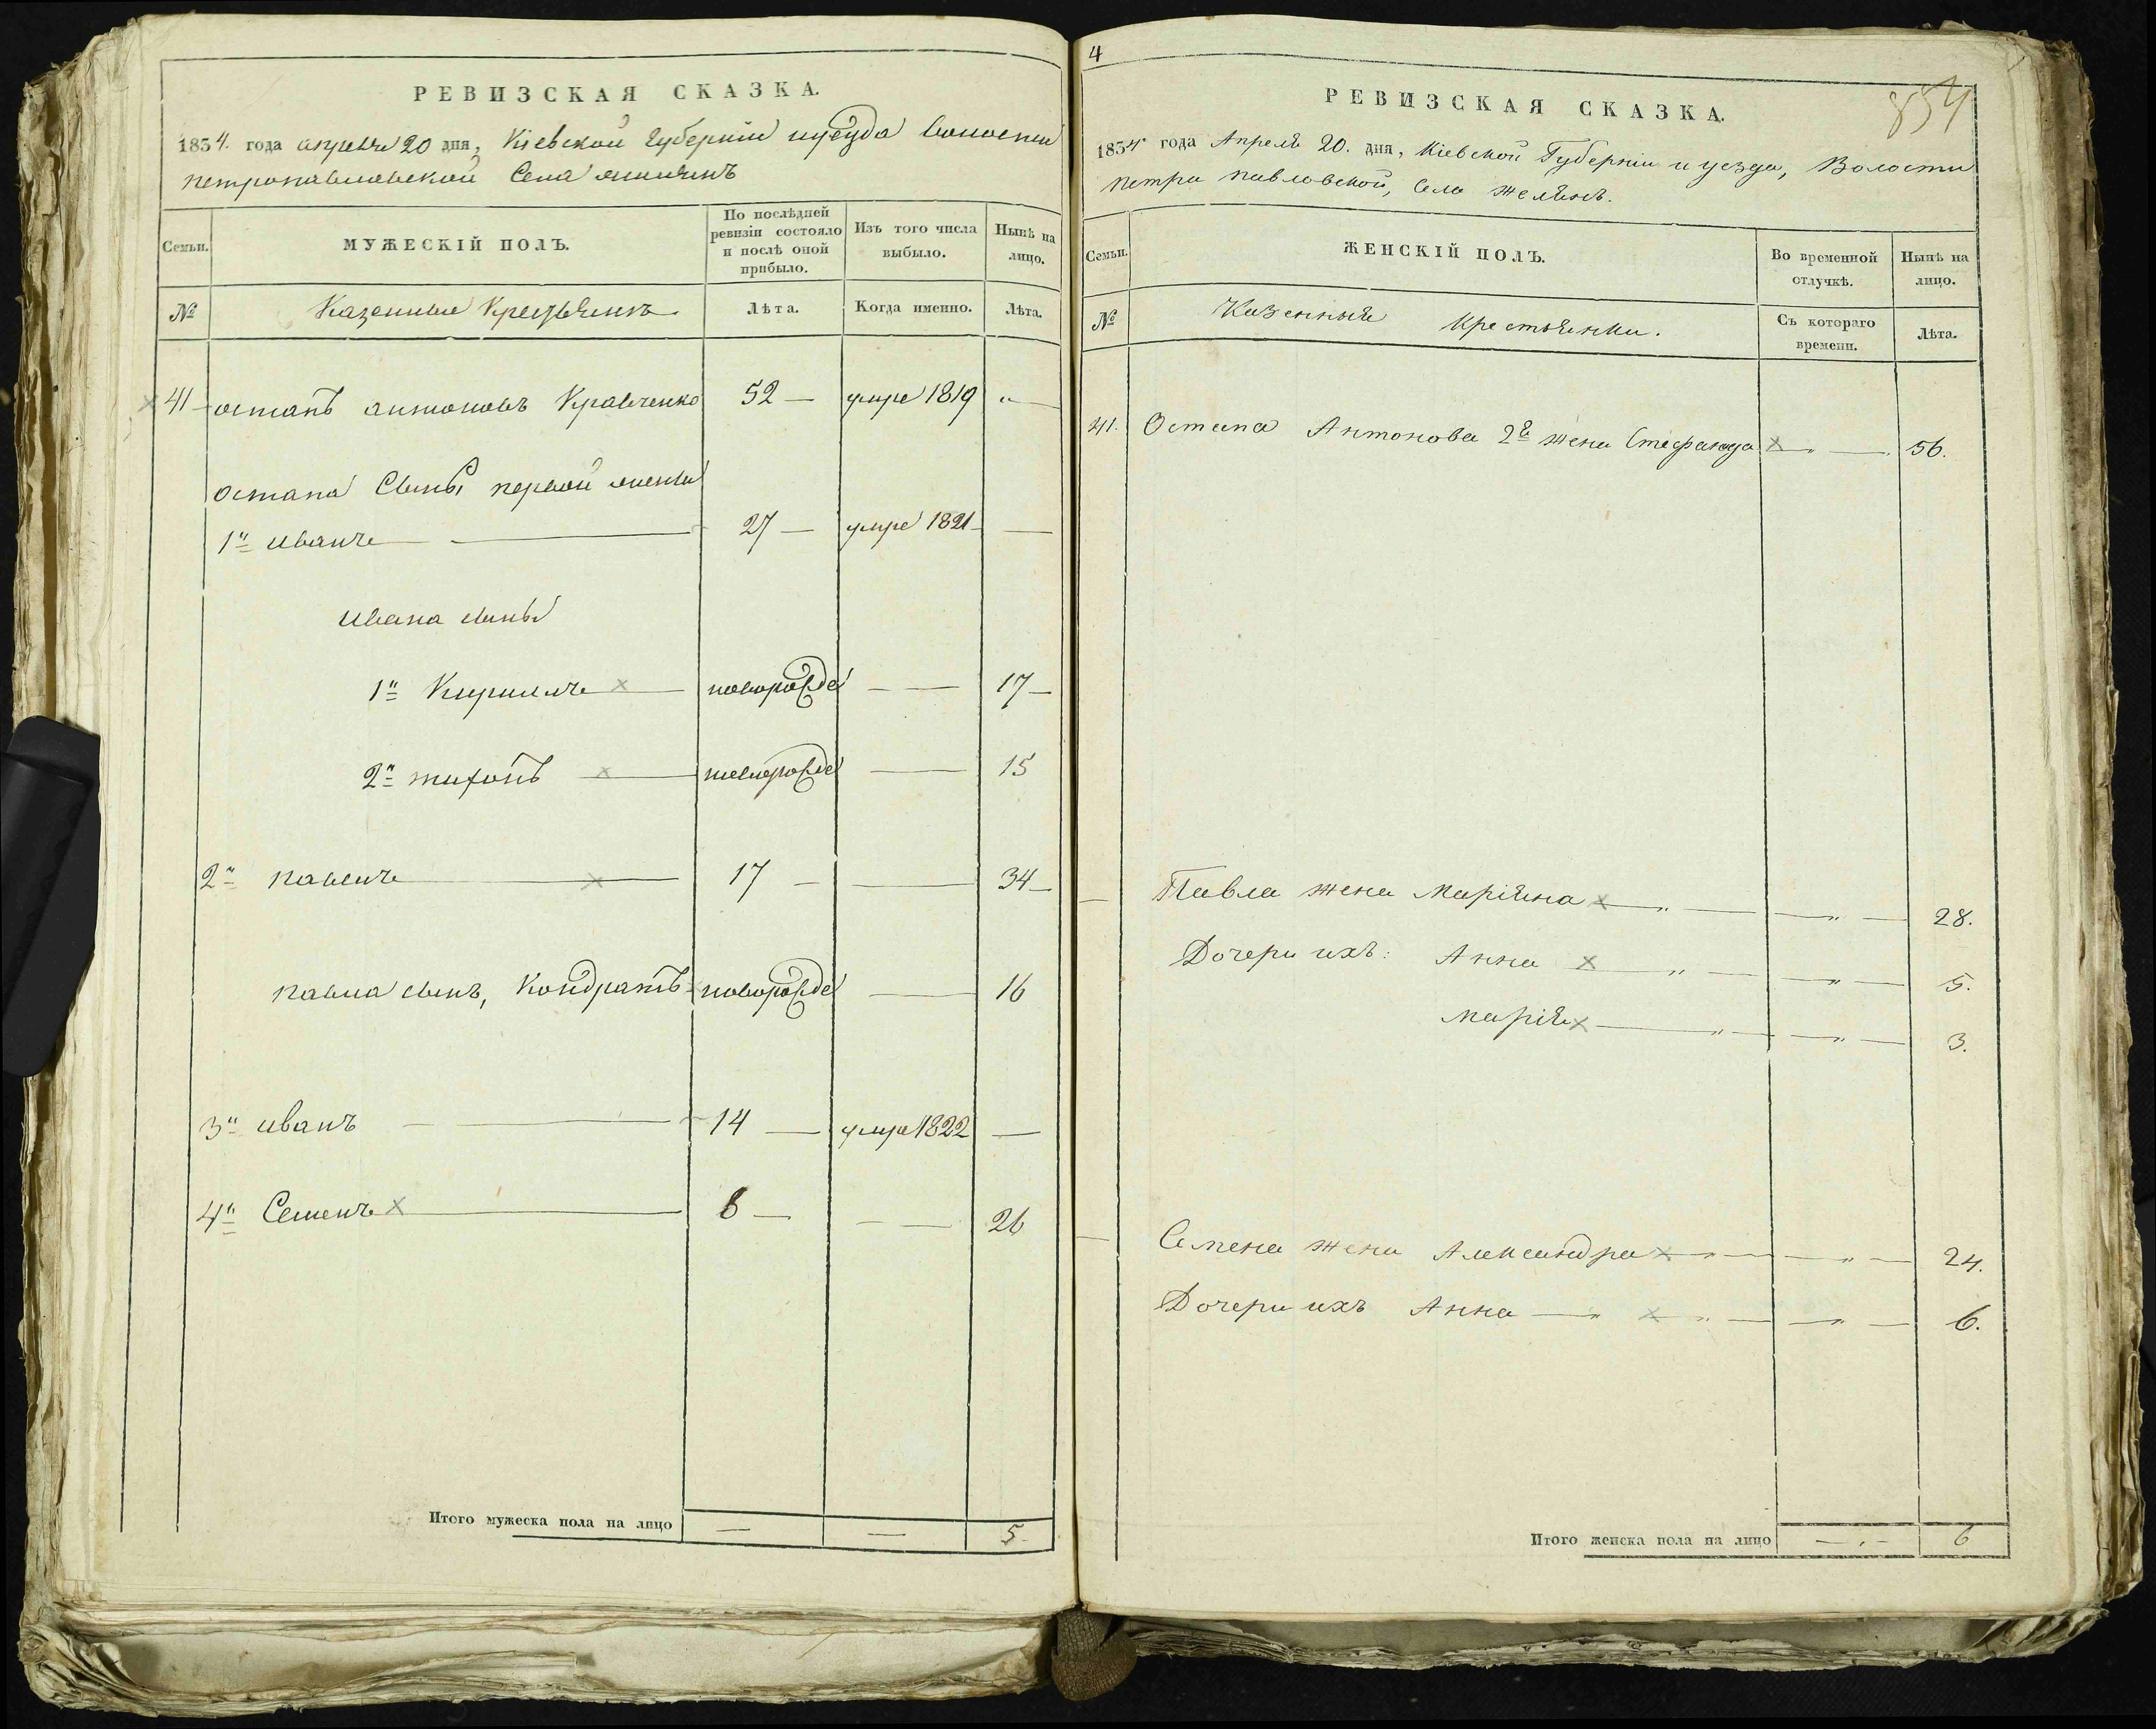 РЕВИЗСКАЯ СКАЗКА.
1834. года апреля 20 дня, Кіевской губерніи и уезда волости
петропавловской Села желянъ
Семьи.
МУЖЕСКІЙ ПОЛЪ.
По послѣдней ревизіи состояло и послѣ оной прибыло.
Изъ того числа выбыло.
Нынѣ на лицо.
№
Казенные Крестьянъ
Лѣта.
Когда именно.
Лѣта.
41 остапъ антоновъ Кравченко 52 — умре 1819 „ —
остапа Сыны первой жены
1й иванъ — 27 — умре 1821 —
Ивана сыны
1й Кирилъ × — новорожде — — 17 —
2й тихонъ × — новорожде — 15
2й павелъ × — 17 — — 34 —
павла сынъ, Кондратъ новорожде — 16
3й иванъ — 14 — умре 1822 —
4й Семенъ × — 6 — — — 26
Итого мужеска пола на лицо — — 5
4
854
РЕВИЗСКАЯ СКАЗКА.
1834 года Апреля 20. дня, Кіевской Губерніи и уезда, Волости
петра павловской, Села желянъ.
Семьи.
ЖЕНСКІЙ ПОЛЪ.
Во временной отлучкѣ.
Нынѣ на лицо.
№
Казенныя Крестьянки.
Съ котораго времени.
Лѣта.
41. Остапа Антонова 2я жена Стефанида × — „ — 56.
Павла жена Маріяна × — „ — — „ — 28.
Дочери ихъ: Анна × — „ — — „ — 5.
Марія × — „ — — „ — 3.
Семена жена Александра × — „ — — „ — 24.
Дочери ихъ Анна — „ × „ — — „ — 6.
Итого женска пола на лицо — „ — 6